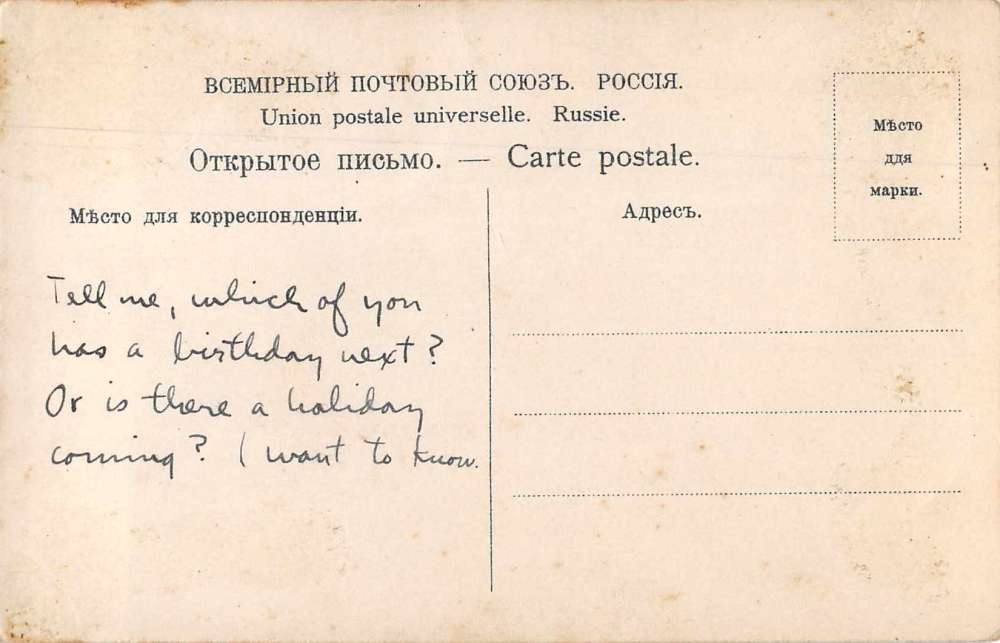 ВСЕМІРНЫЙ ПОЧТОВЫЙ СОЮЗЪ. РОССІЯ.
Union postale universelle. Russie.
Открытое письмо. — Carte postale.
Мѣсто
ддя
марки.
Мѣсто для корреспонденціи.
Адресъ.
Tell me, which of you
has a birthday next?
Or is there a holiday
coming? I want to know.